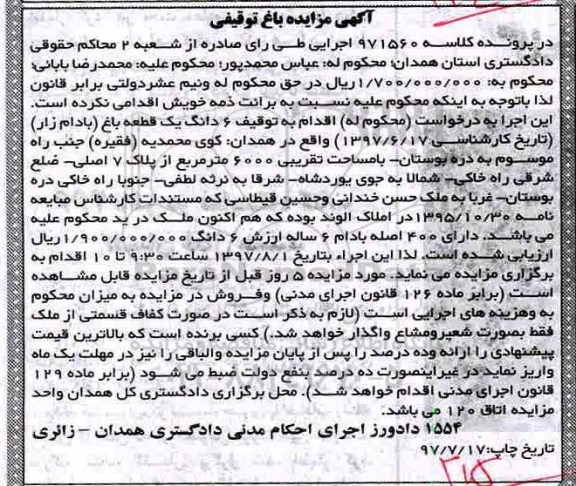 آگهی مزایده باغ توقیفی
در پرونده کلاسه ۹۷۱۵۶۰ اجرایی طی رای صادره از شعبه ۲ محاکم حقوقی
دادگستری استان همدان؛ محکوم له: عباس محمدپور؛ محکوم علیه: محمدرضا بابائی؛
محکوم به: ۱/۷۰۰/۰۰۰/۰۰۰ ریال در حق محکوم له ونیم عشردولتی برابر قانون
لذا باتوجه به اینکه محکوم علیه نسبت به برائت ذمه خویش اقدامی نکرده است.
این اجرا به درخواست (محکوم له) اقدام به توقیف ۶ دانگ یک قطعه باغ (بادام زار)
(تاریخ کارشناسی ۱۳۹۷/۶/۱۷) واقع در همدان: کوی محمدیه (فقیره) جنب راه
موسوم به دره بوستان- بامساحت تقریبی ۶۰۰۰ مترمربع از پلاک ۷ اصلی- ضلع
شرقی راه خاکی- شمالا به جوی یوردشاه- شرقا به نرثه لطفی- جنوبا راه خاکی دره
بوستان- غربا به ملک حسن خندانی وحسین قیطاسی که مستندات کارشناس مبایعه
نامه ۱۳۹۵/۱۰/۳۰ در املاک الوند بوده که هم اکنون ملک در ید محکوم علیه
می باشد. دارای ۴۰۰ اصله بادام ۶ ساله ارزش ۶ دانگ ۱/۹۰۰/۰۰۰/۰۰۰ ریال
ارزیابی شده است. لذا این اجراء بتاریخ ۱۳۹۷/۸/۱ ساعت ۹:۳۰ تا ۱۰ اقدام به
برگزاری مزایده می نماید. مورد مزایده ۵ روز قبل از تاریخ مزایده قابل مشاهده
است (برابر ماده ۱۲۶ قانون اجرای مدنی) وفروش در مزایده به میزان محکوم
به وهزینه های اجرایی است (لازم به ذکر است در صورت کفاف قسمتی از ملک
فقط بصورت شعیرومشاع واگذار خواهد شد.) کسی برنده است که بالاترین قیمت
پیشنهادی را ارائه وده درصد را پس از پایان مزایده والباقی را نیز در مهلت یک ماه
واریز نماید در غیراینصورت ده درصد بنفع دولت ضبط می شود (برابر ماده ۱۲۹
قانون اجرای مدنی اقدام خواهد شد). محل برگزاری دادگستری کل همدان واحد
مزایده اتاق ۱۲۰ می باشد.
۱۵۵۴ دادورز اجرای احکام مدنی دادگستری همدان – زائری
تاریخ چاپ: ۹۷/۷/۱۷
۳۱۵